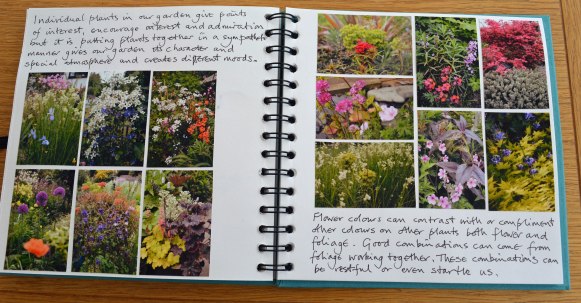 Individual plants in our garden give points
of interest, encourage interest and admiration
but it is putting plants together in a sympathetic
manner gives our garden its character and
special atmosphere and creates different moods.
Flower colours can contrast with or compliment
other colours on other plants both flower and
foliage. Good combinations can come from
foliage working together. These combinations can
be restful or even startle us.